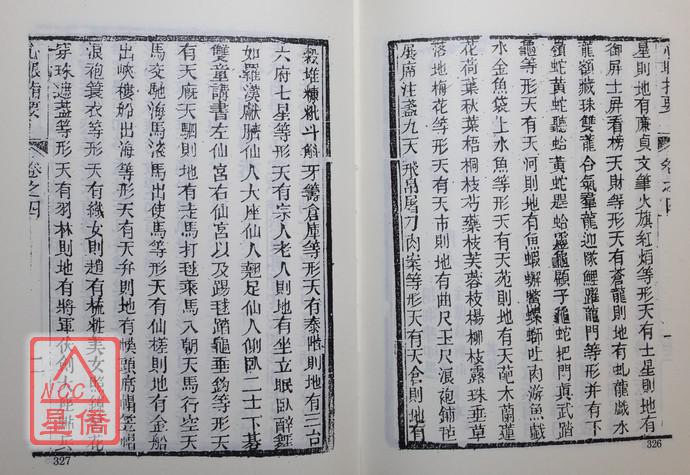 星則地有廉貞文筆火旗紅焰等形天有土星則地有
御屏士昇看榜天財等形天有蒼龍則地有虬龍戲水
龍顧藏珠雙龍合氣羣龍迎隊鯉躍龍門等形并有下
嶺蛇黃蛇聽蛤黃蛇趕蛤靈龜顧子龜蛇把門眞武踏
水金魚袋上水魚等形天有天河則地有魚蝦蟹鱉螺螄吐肉游魚戲
花荷葉秋葉梧桐枝芍藥枝芙蓉枝楊柳枝露珠垂草
落地梅花等形天有天市則地有曲尺玉尺滾袍鋪毡
展席注盞九天飛帛屠刀肉案等形天有天倉則地有
326
穀堆糠粃斗斛牙籌倉庫等形天有泰階則地有三台
六府七星等形天有宗人老人則地有坐立眠臥醉舞
如羅漢獻臍仙人大座仙人翹足仙人側臥二士下棊
雙童講書左仙宮右仙宮以及踢毬踏龜垂鈎等形天
有天廄天駟則地有走馬打毬乘馬入朝天馬行空
馬交馳海馬滾馬出使馬等形天有仙槎則地有金船
出峽樓船出海等形天有天弁則地有幞頭席帽等帽
浪袍簑衣等形天有織女則趙有梳粧美女照鏡
穿珠遮蓋等形天有羽林則地有將軍
卷之四
NCC
星僑
327